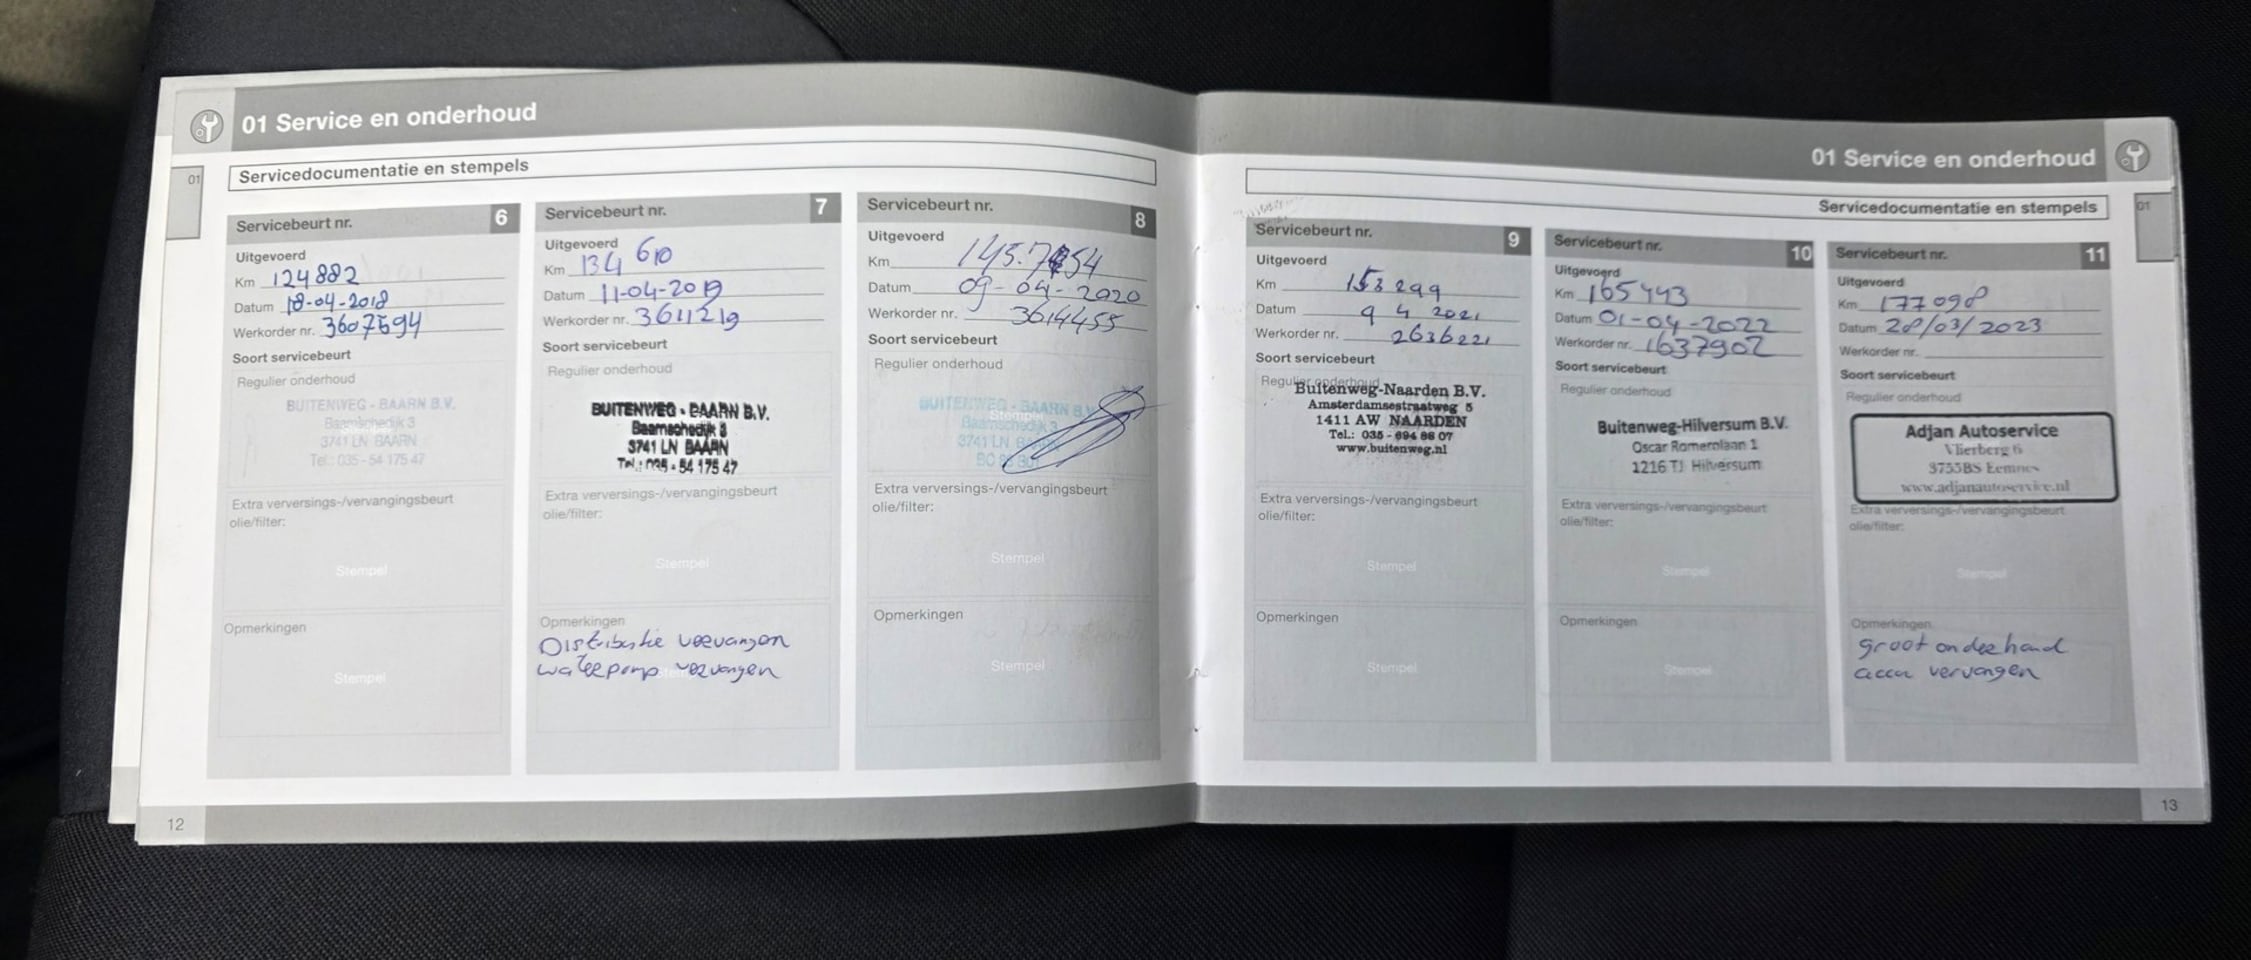 01 Service en onderhoud
01
Servicedocumentatie en stempels
Servicebeurt nr. 6
Uitgevoerd
Km 124882
Datum 18-04-2018
Werkorder nr. 3607594
Soort servicebeurt
Regulier onderhoud
BUITENWEG - BAARN B.V.
Baarnschedijk 3
3741 LN BAARN
Tel.: 035 - 54 175 47
Extra verversings-/vervangingsbeurt
olie/filter:
Stempel
Opmerkingen
Stempel
Servicebeurt nr. 7
Uitgevoerd
Km 134 610
Datum 11-04-2019
Werkorder nr. 3611219
Soort servicebeurt
Regulier onderhoud
BUITENWEG - BAARN B.V.
Baarnschedijk 3
3741 LN BAARN
Tel.: 035 - 54 175 47
Extra verversings-/vervangingsbeurt
olie/filter:
Stempel
Opmerkingen
Distributie vervangen
waterpomp vervangen
Servicebeurt nr. 8
Uitgevoerd
Km
Datum 09-04-2020
Werkorder nr. 3614455
Soort servicebeurt
Regulier onderhoud
Stempel
BUITENWEG - BAARN B.V.
Baarnschedijk 3
3741 LN
Extra verversings-/vervangingsbeurt
olie/filter:
Stempel
Opmerkingen
Stempel
12
01 Service en onderhoud
01
Servicedocumentatie en stempels
Servicebeurt nr. 9
Uitgevoerd
Km 153 299
Datum 9 4 2021
Werkorder nr. 2636221
Soort servicebeurt
Regulier onderhoud
Buitenweg-Naarden B.V.
Amsterdamsestraatweg 5
1411 AW NAARDEN
Tel.: 035 - 694 88 07
www.buitenweg.nl
Extra verversings-/vervangingsbeurt
olie/filter:
Stempel
Opmerkingen
Stempel
Servicebeurt nr. 10
Uitgevoerd
Km 165443
Datum 01-04-2022
Werkorder nr. 1637902
Soort servicebeurt
Regulier onderhoud
Buitenweg-Hilversum B.V.
Oscar Romerolaan 1
1216 TJ Hilversum
Extra verversings-/vervangingsbeurt
olie/filter:
Stempel
Opmerkingen
Stempel
Servicebeurt nr. 11
Uitgevoerd
Km 177098
Datum 28/03/2023
Werkorder nr.
Soort servicebeurt
Regulier onderhoud
Adjan Autoservice
Vlierberg 6
3755BS Eemnes
www.adjanautoservice.nl
Extra verversings-/vervangingsbeurt
olie/filter:
Stempel
Opmerkingen
groot onderhoud
accu vervangen
13